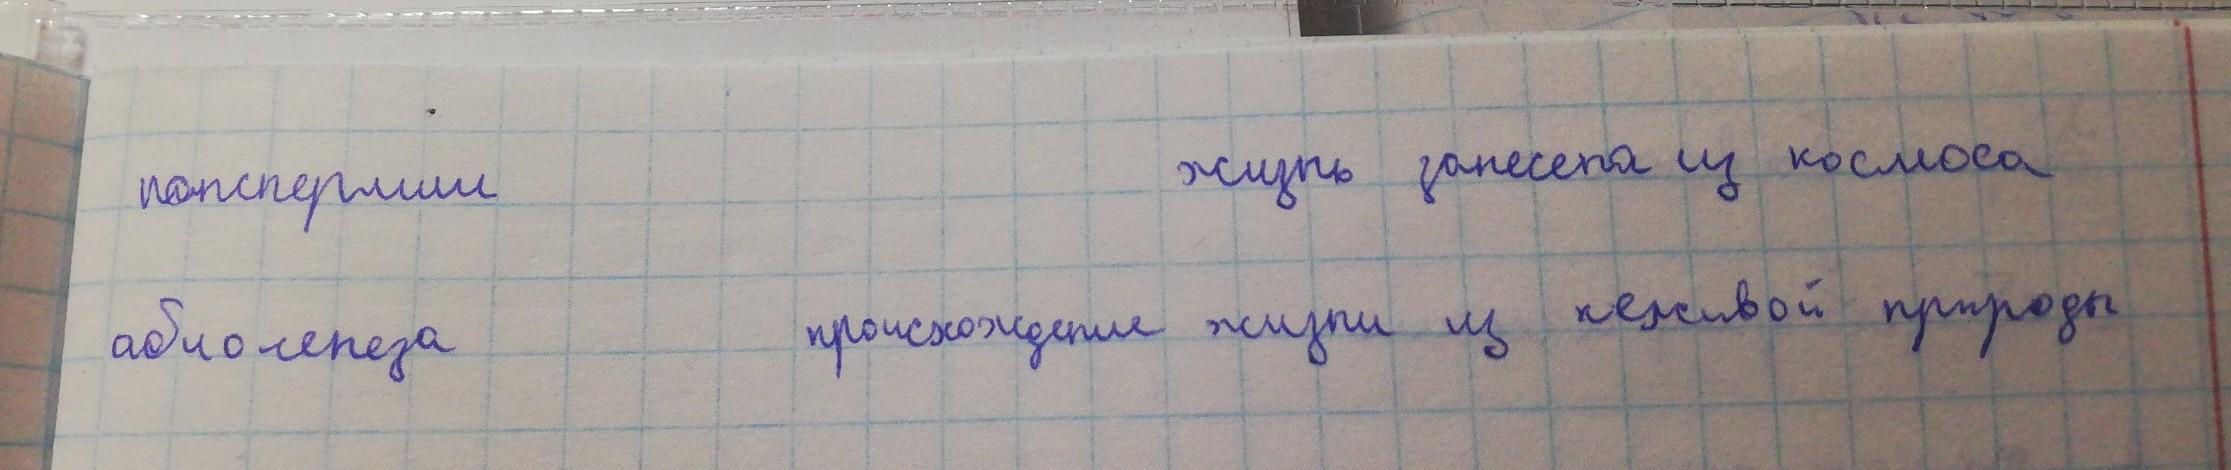 панспермии жизнь занесена из космоса
абиогенеза происхождение жизни из неживой природы